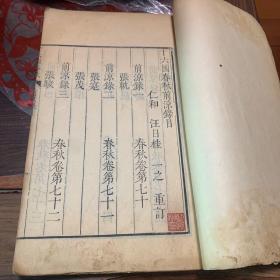 十六國春秋前涼錄目
仁和 汪日桂 一之 重訂
前涼錄一 春秋卷第七十
張軌
前涼錄二 春秋卷第七十一
張寔
張茂
前涼錄三 春秋卷第七十二
張駿